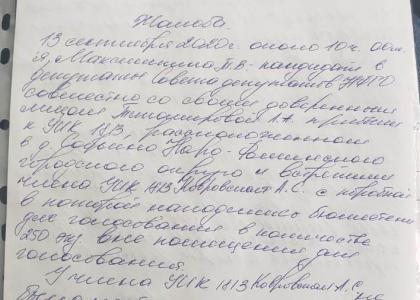 Жалоба.
13 сентября 2020г. около 10ч. 00м.
я, Максимишина Т.В. - кандидат в
депутаты Совета депутатов НФГО
совместно со своим доверенным
лицом Тихомировой Л.А. пришли
к УИК 1813, расположенном
в д. Софьино Наро-Фоминского
городского округа и встретили
члена УИК 1813 Ковровская А.С. с коробкой
в которой находились бюллетени
для голосования в количестве
250 шт. вне помещения для
голосования.
У члена УИК 1813 Ковровская А.С.